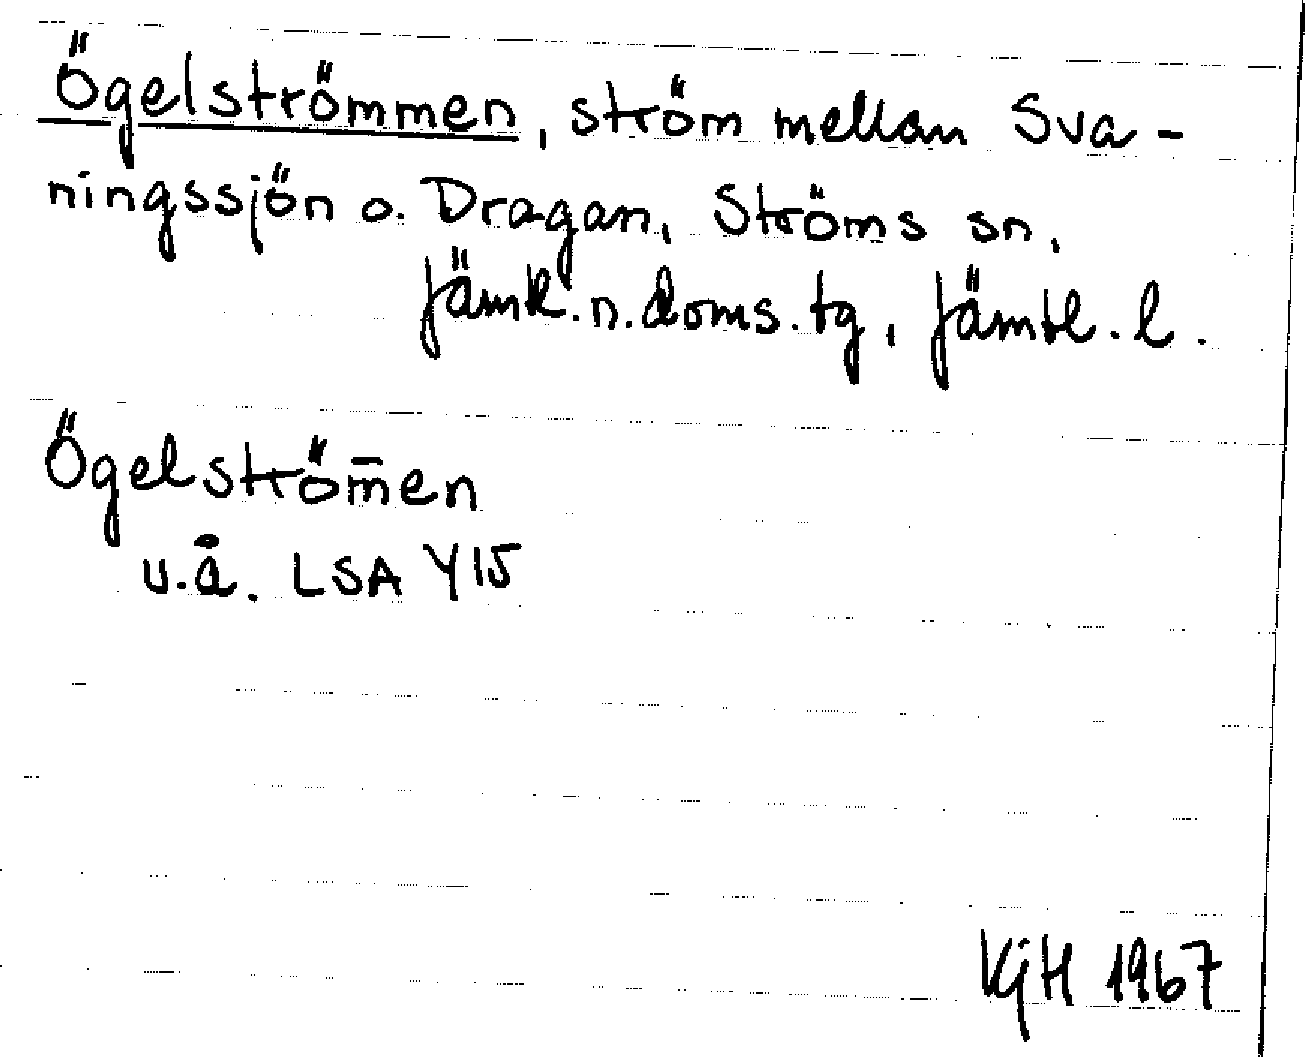 Ögelströmmen, ström mellan Sva-
ningssjön o. Dragan, Ströms sn,
Jämt. n. doms. tg, Jämtl. l.
Ögelström̄en
u.å. LSA Y15
KgH 1967